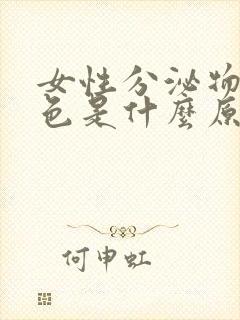 女性分泌物
色是什麼原
何申虹